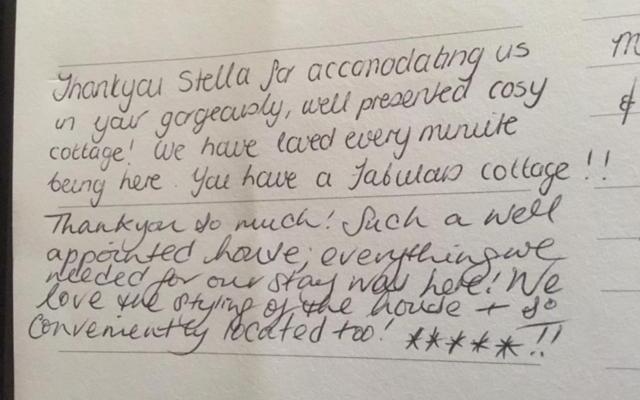 Thankyou Stella for accomodating us
in your gorgeously, well presented cosy
cottage! We have loved every minuite
being here. You have a fabulous cottage!!
Thankyou so much! Such a well
appointed house; everything we
needed for our stay was here! We
love the styling of the house + so
conveniently located too! *****!!
M
&